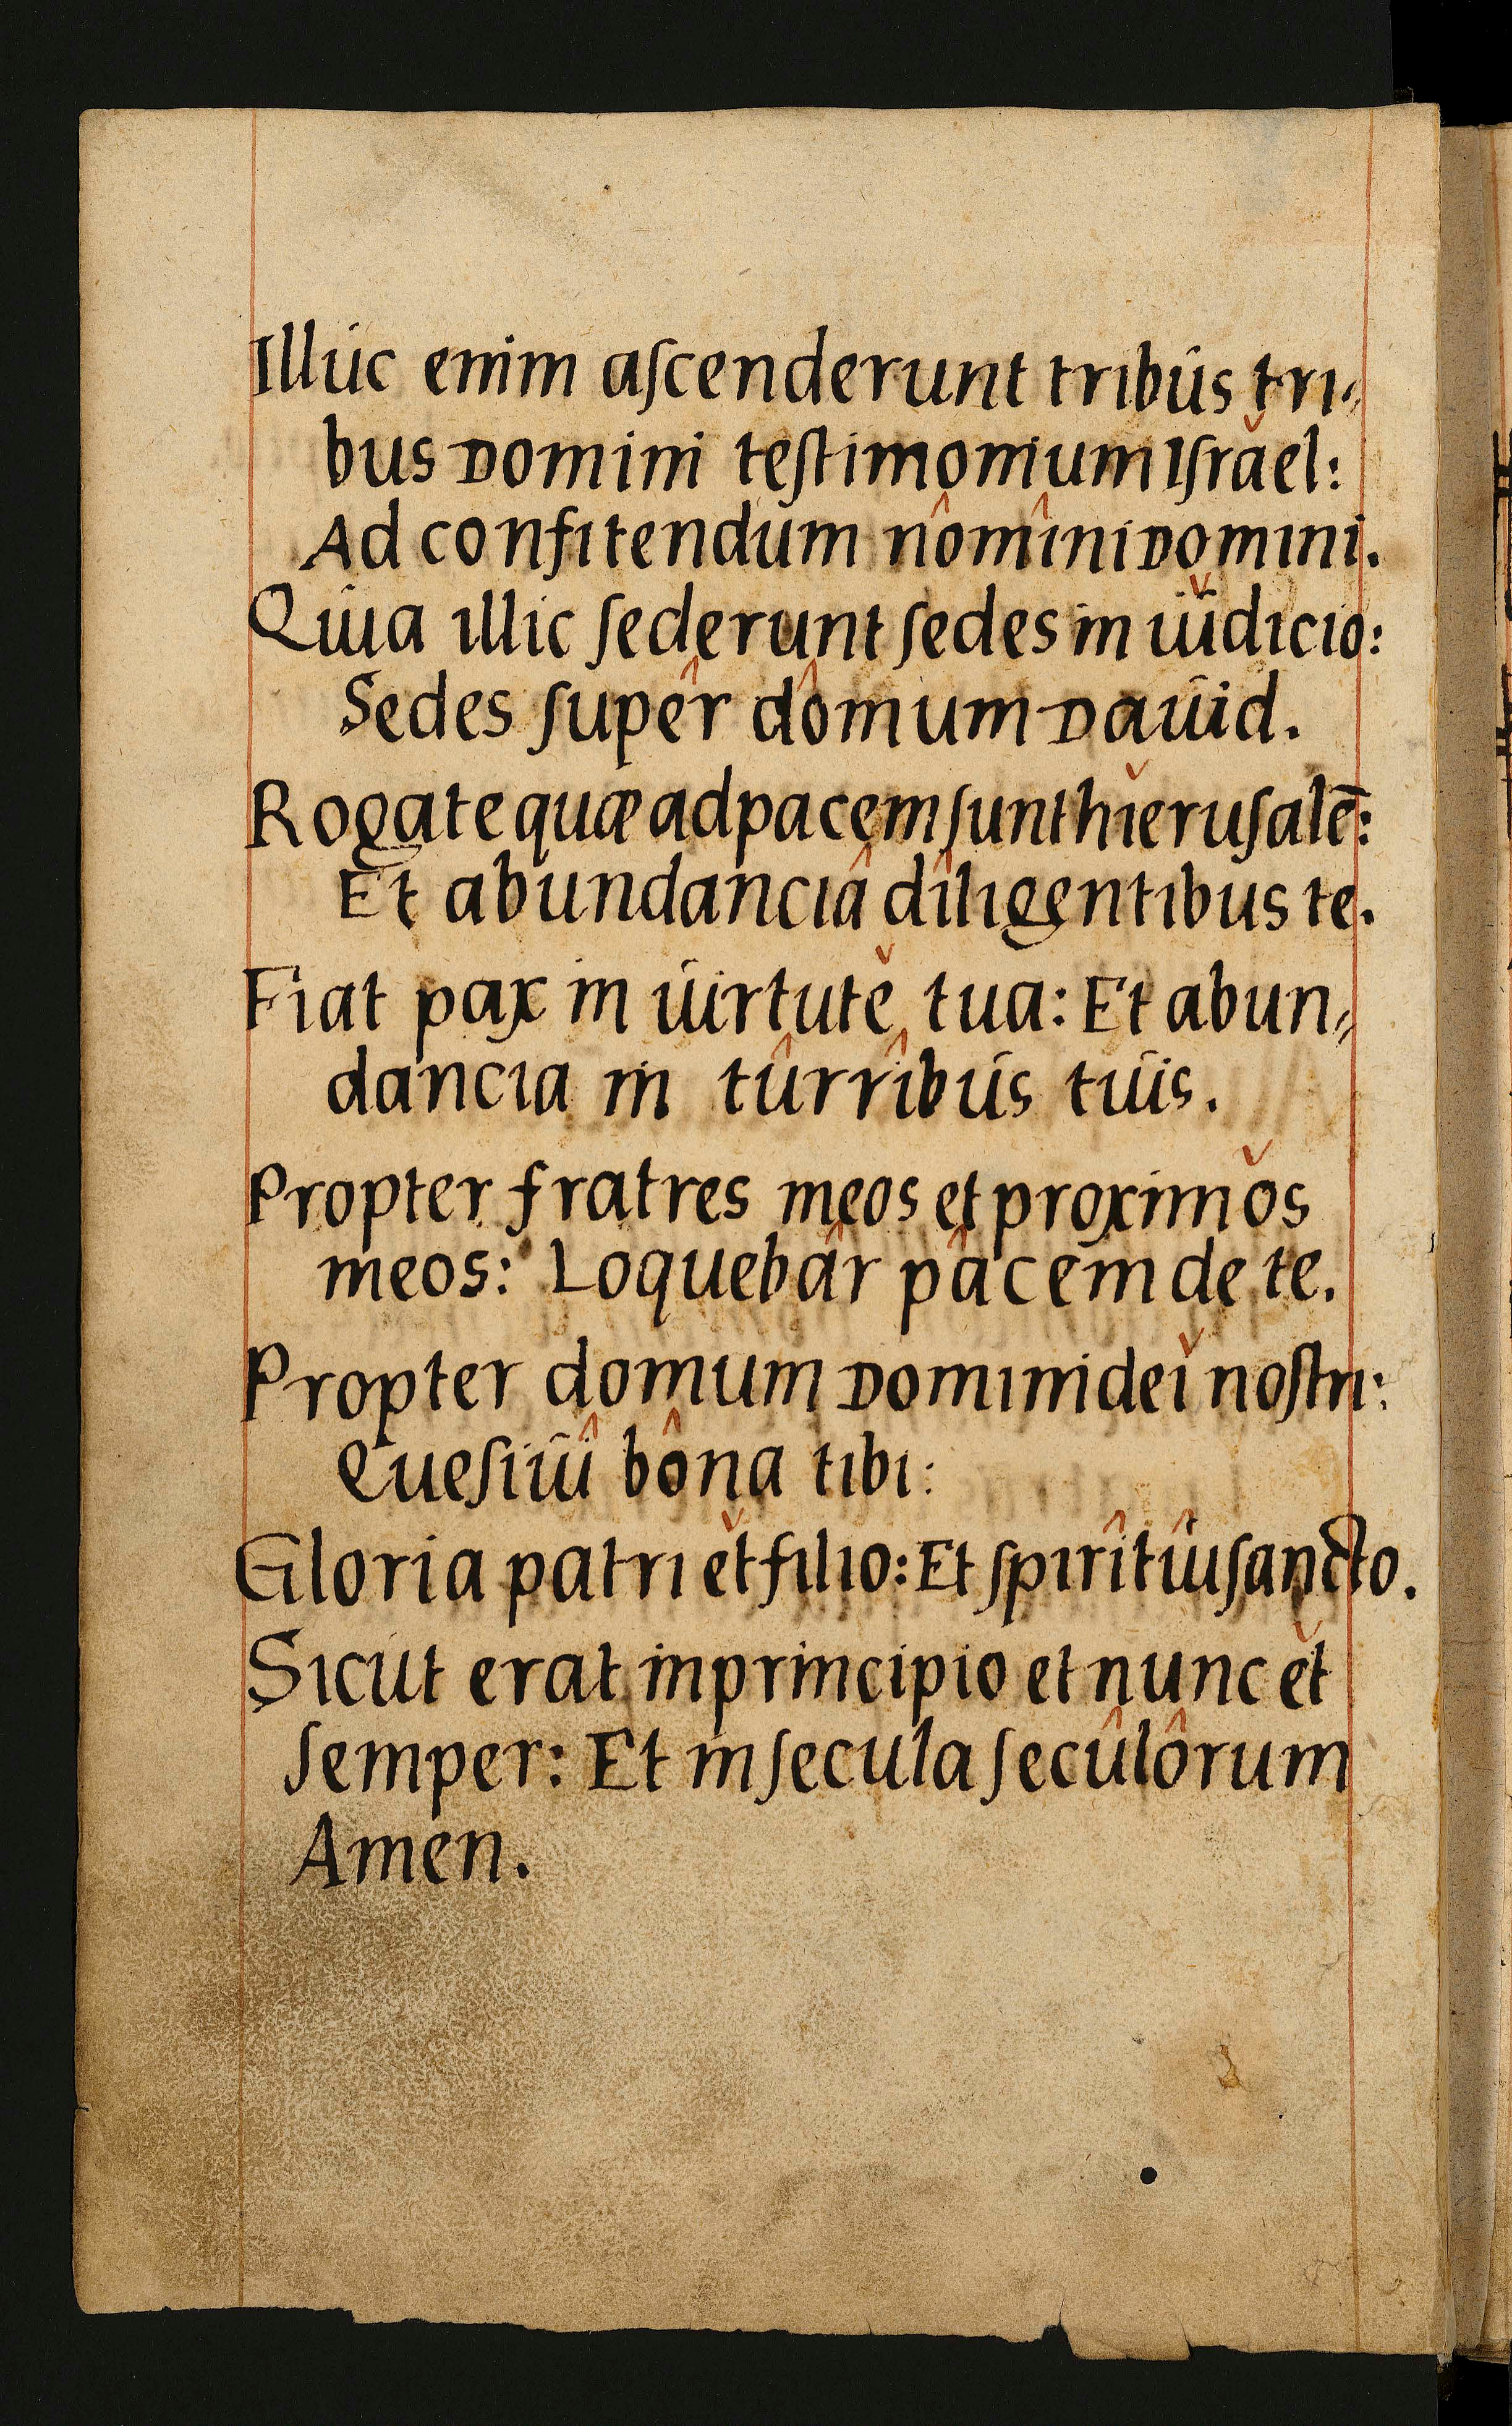 Illuc enim aſcenderunt tribus tri⸗
bus Domini teſtimonium Iſrael:
Ad confitendum nomini Domini.
Quia illic ſederunt ſedes in iudicio:
Sedes ſuper domum Dauid.
Rogate quæ ad pacem ſunt hieruſalē:
Et abundancia diligentibus te.
Fiat pax in uirtute tua: Et abun⸗
dancia in turribus tuis.
Propter fratres meos et proximos
meos: Loquebar pacem de te.
Propter domum Domini dei noſtri:
Queſiui bona tibi:
Gloria patri et filio: Et ſpiritui ſancto.
Sicut erat in principio et nunc et
ſemper: Et in ſecula ſeculorum
Amen.